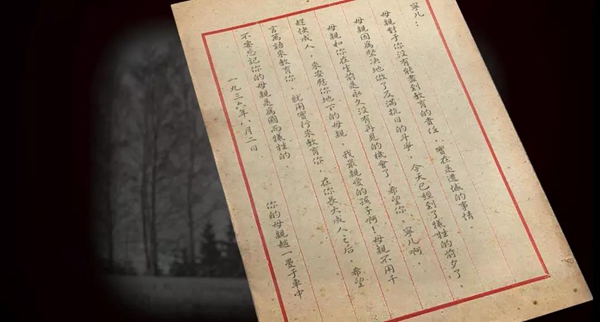 寧儿：
母親對于你沒有能盡到教育的責任，實在是遺憾的事情。
母親因爲堅決地做了反滿抗日的斗爭，今天已經到了犧牲的前夕了。
母親和你在生前是永久沒有再見的機會了。希望你，寧儿啊，
趕快成人，來安慰你地下的母親。我最親愛的孩子啊！母親不用千
言萬語來教育你，就用實行來教育你。在你長大成人之后，希望
不要忘記你的母親是爲國而犧牲的
一九三六年八月二日
你的母親趙一曼于車中